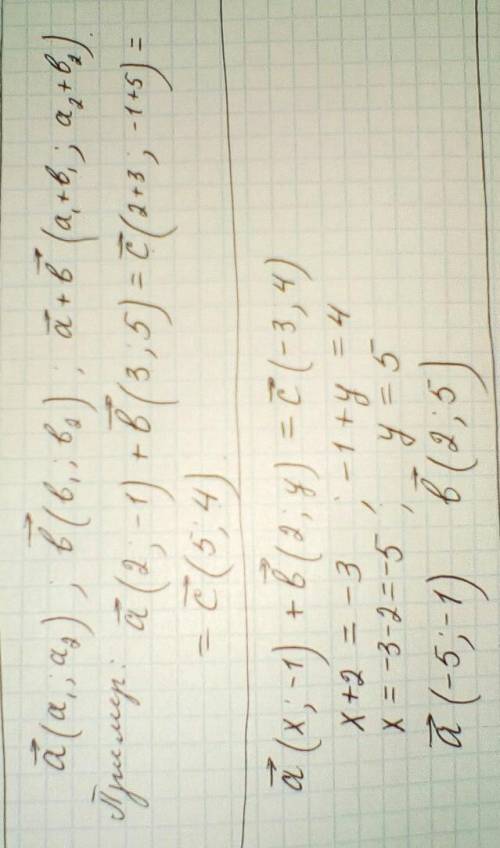 a⃗(a₁; a₂), b⃗(b₁; b₂); a⃗+b⃗(a₁+b₁; a₂+b₂).
Пример: a⃗(2; -1) + b⃗(3; 5) = c⃗(2+3; -1+5) =
= c⃗(5; 4)
a⃗(x; -1) + b⃗(2; y) = c⃗(-3; 4)
x+2 = -3 ; -1+y = 4
x = -3-2 = -5 , y = 5
a⃗(-5; -1) b⃗(2; 5)